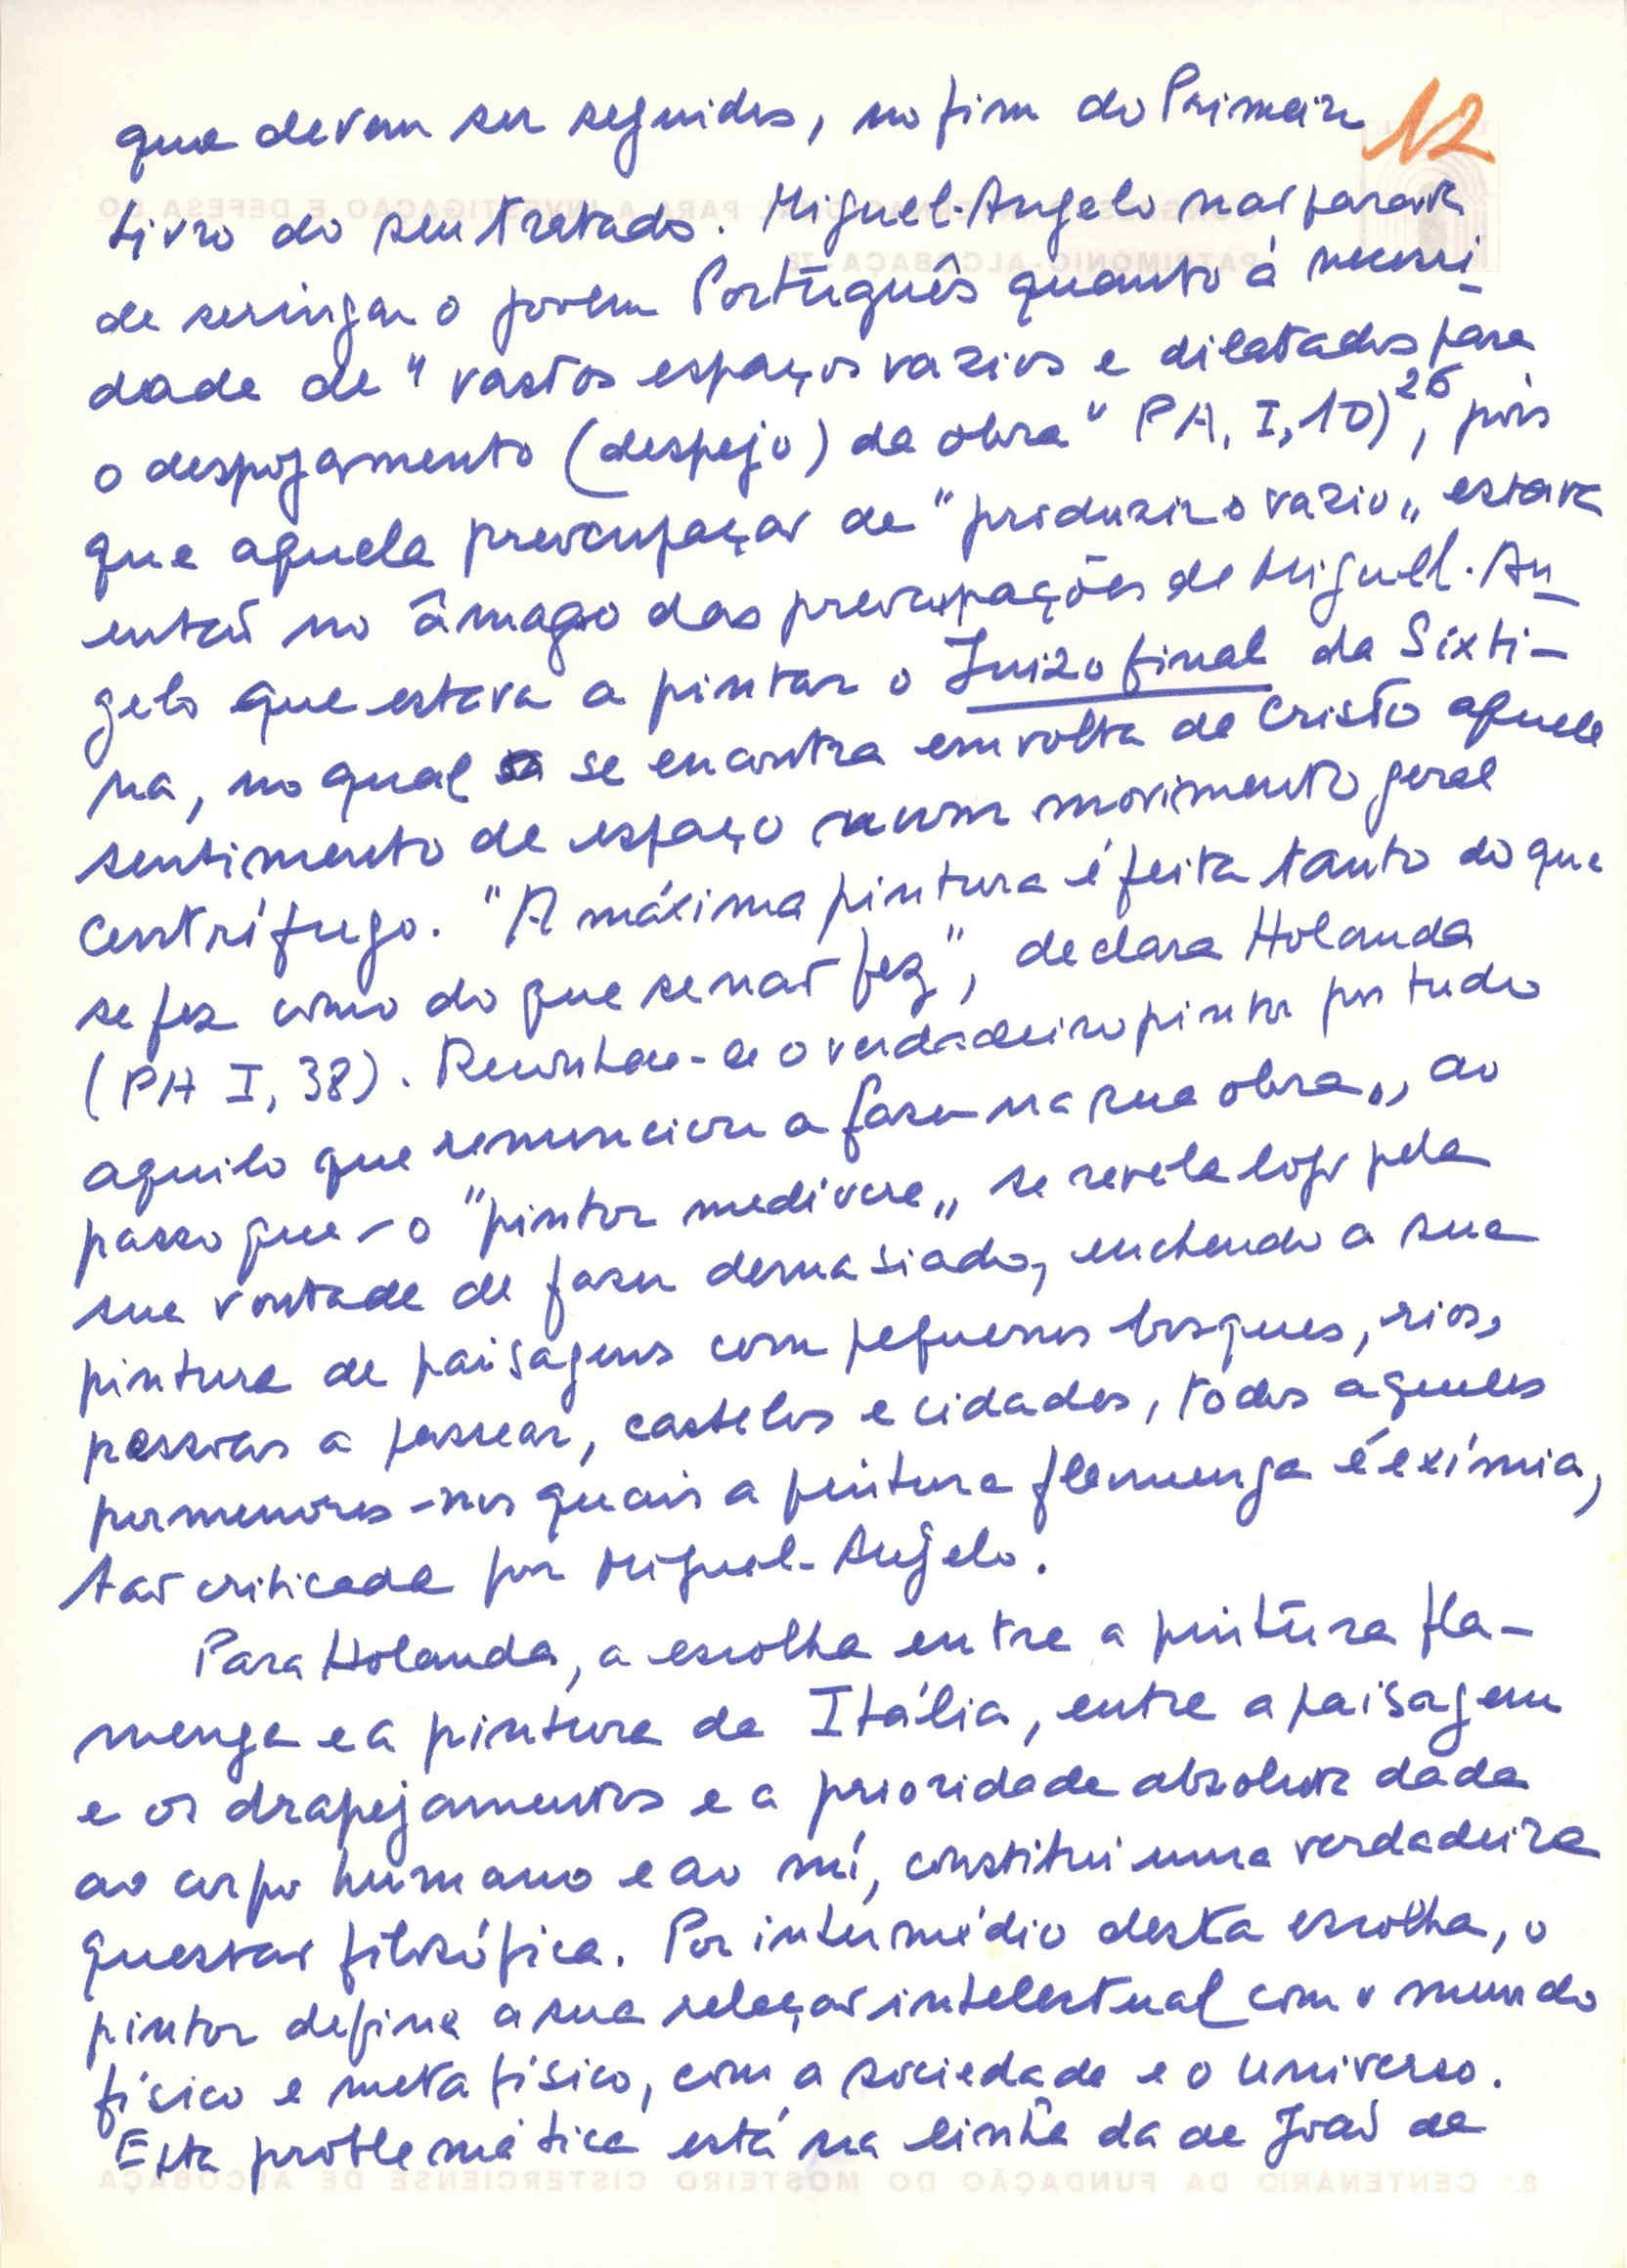 12
que devem ser seguidos, no fim do Primeiro
Livro do seu tratado. Miguel-Angelo não parava
de seringar o jovem Português quanto à necessi-
dade de "vastos espaços vazios e dilatados para
o despojamento (despejo) da obra" PA, I, 10)26, pois
que aquela preocupação de "produzir o vazio" estava
então no âmago das preocupações de Miguel-An-
gelo que estava a pintar o Juizo final da Sixti-
na, no qual se encontra em volta de Cristo aquele
sentimento de espaço num movimento geral
centrífugo. "A máxima pintura é feita tanto do que
se fez como do que se não fez", declara Holanda
(PA I, 38). Reconhece-se o verdadeiro pintor por tudo
aquilo que renunciou a fazer na sua obra, ao
passo que - o "pintor medíocre" se revela logo pela
sua vontade de fazer demasiado, enchendo a sua
pintura de paisagens com pequenos bosques, rios,
pessoas a passear, castelos e cidades, todos aqueles
pormenores - nos quais a pintura flamenga é exímia,
tão criticada por Miguel-Angelo.
Para Holanda, a escolha entre a pintura fla-
menga e a pintura de Itália, entre a paisagem
e os drapejamentos e a prioridade absoluta dada
ao corpo humano e ao nú, constitui uma verdadeira
questão filosófica. Por intermédio desta escolha, o
pintor define a sua relação intelectual com o mundo
físico e metafísico, com a sociedade e o universo.
Esta problemática está na linha da de João de
8.º CENTENÁRIO DA FUNDAÇÃO DO MOSTEIRO CISTERCIENSE DE ALCOBAÇA